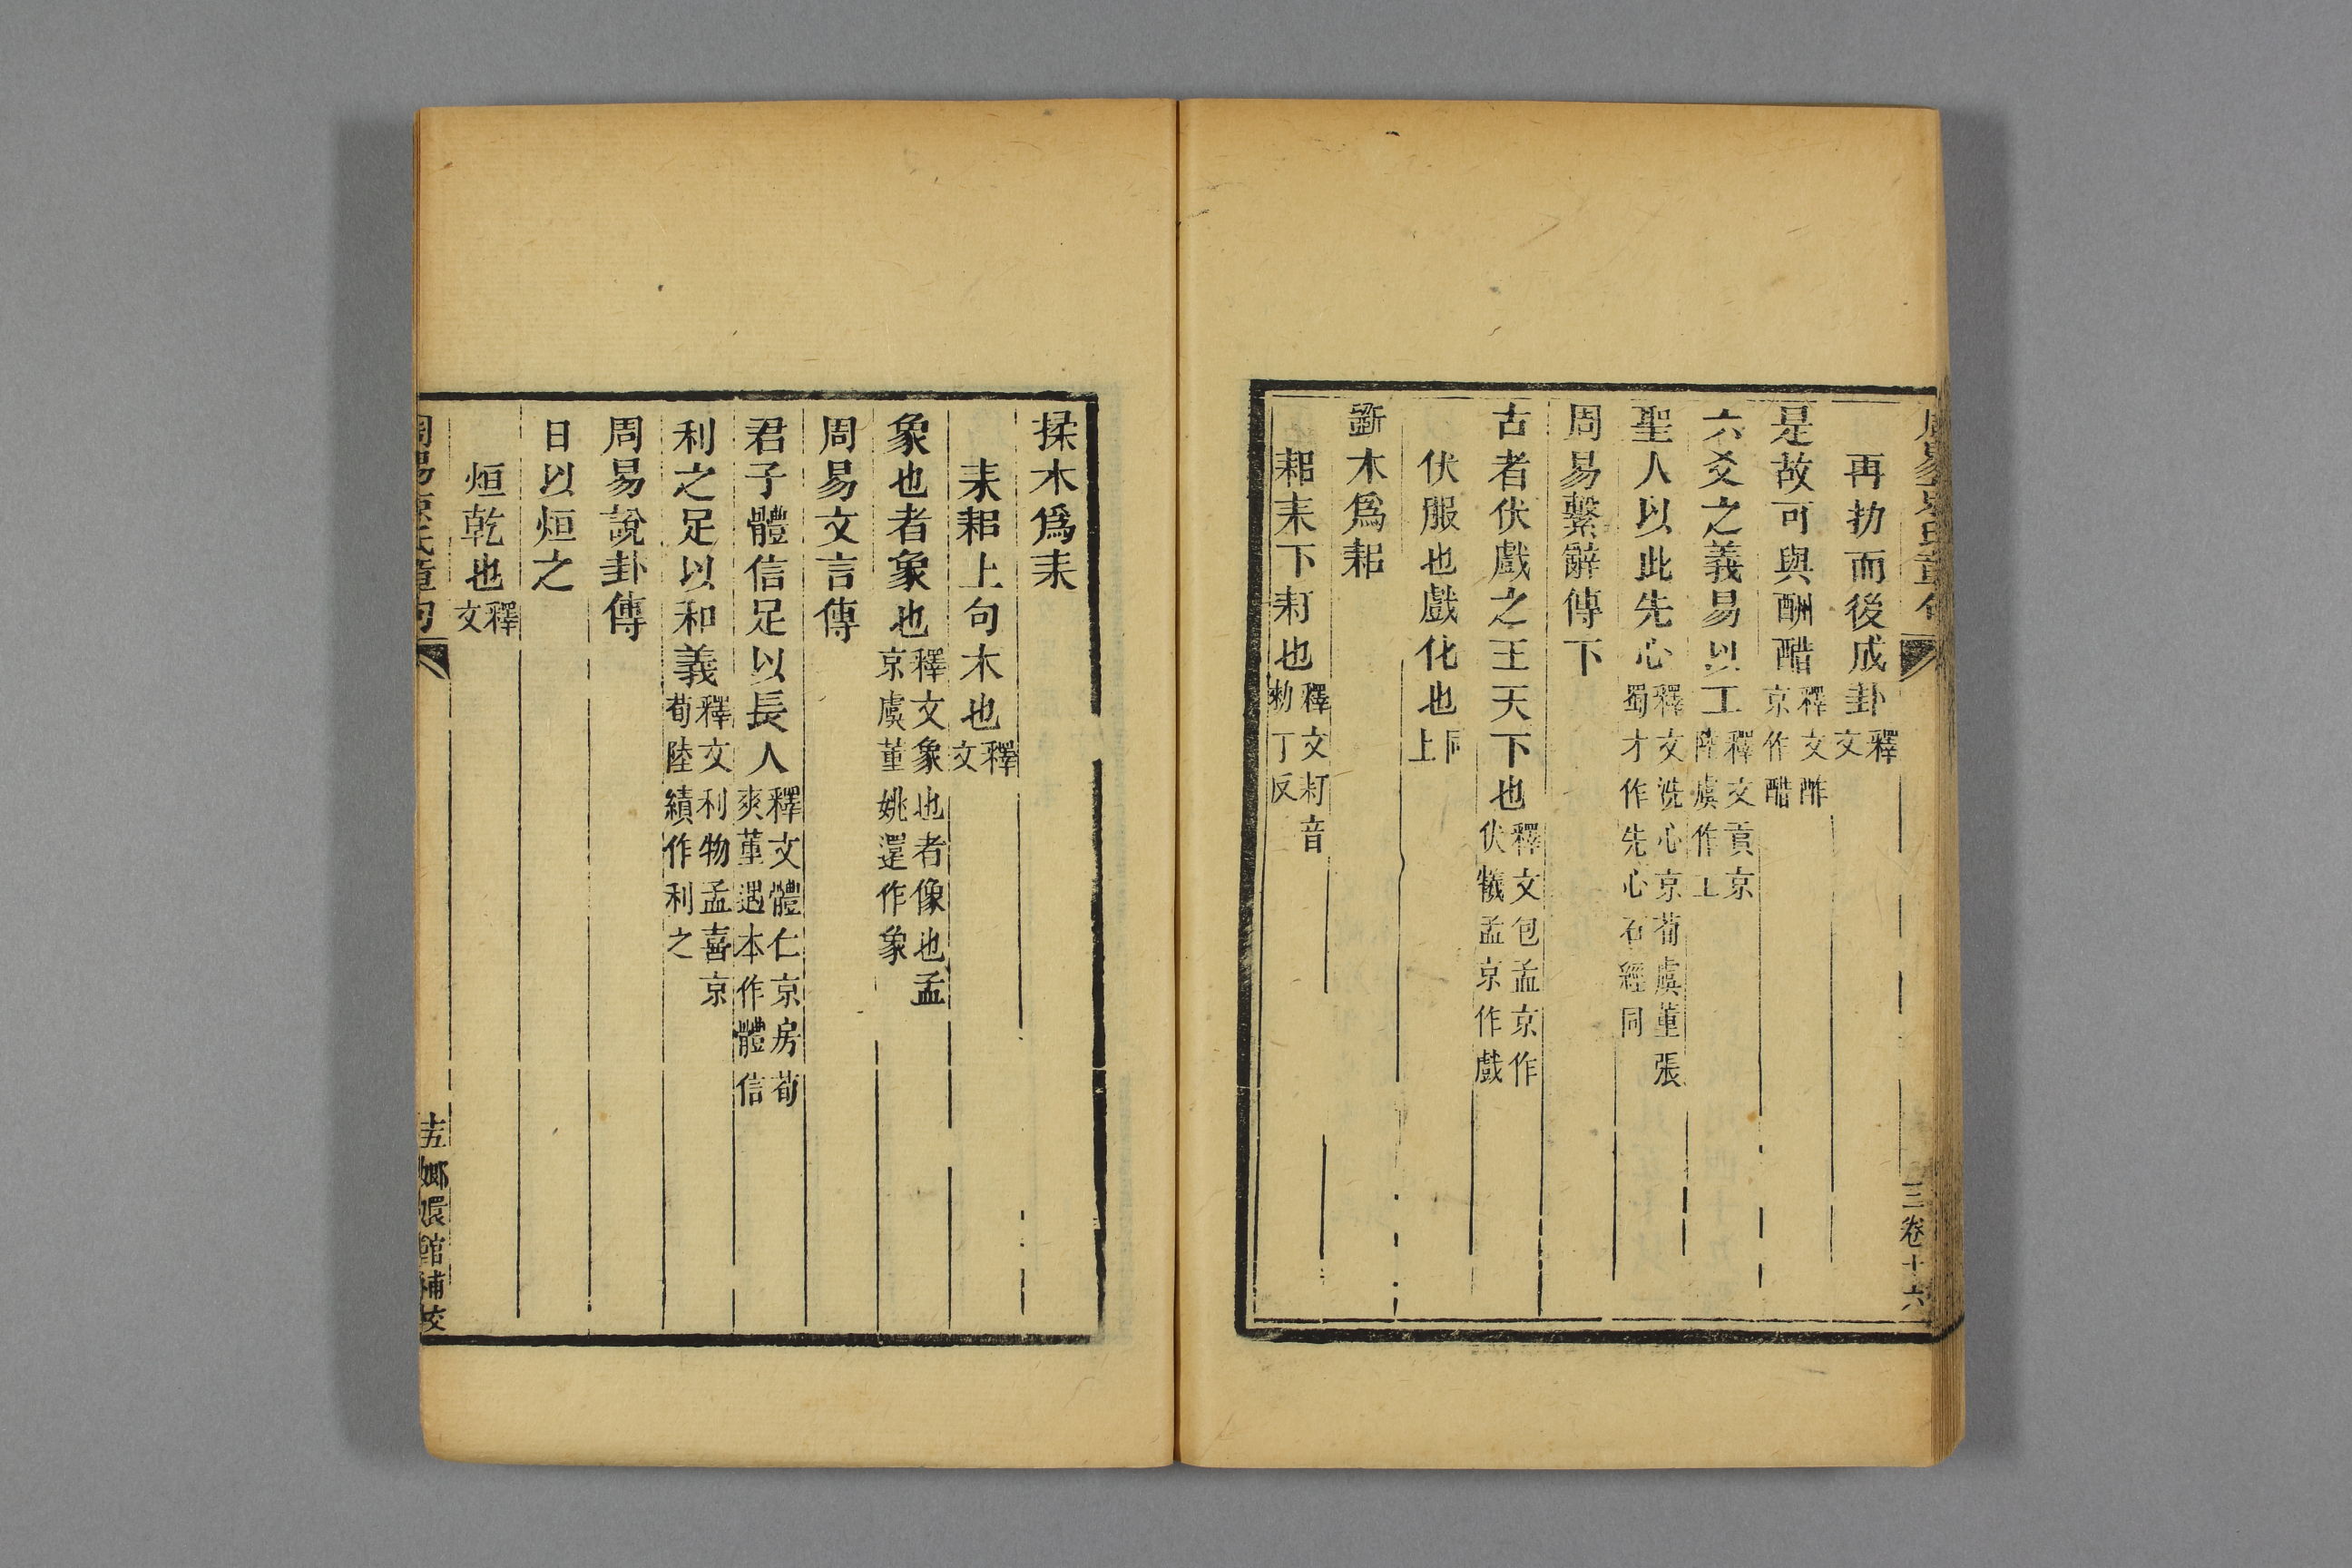 周易京氏章句
三卷十六
再扐而後成卦釋文
是故可與酬醋釋文酢京作醋
六爻之義易以工釋文貢京陸虞作工
聖人以此先心釋文洗心京荀虞董張蜀才作先心石經同
周易繫辭傳下
古者伏戲之王天下也釋文包孟京作伏犧孟京作戲
伏服也戲化也同上
斲木爲耜
耜耒下耓也釋文耓音勑丁反
揉木爲耒
耒耜上句木也釋文
象也者象也釋文象也者像也孟京虞董姚還作象
周易文言傳
君子體信足以長人釋文體仁京房荀爽董遇本作體信
利之足以和義釋文利物孟喜京荀陸績作利之
周易說卦傳
日以烜之
烜乾也釋文
周易京氏章句
十五嫏嬛館補校